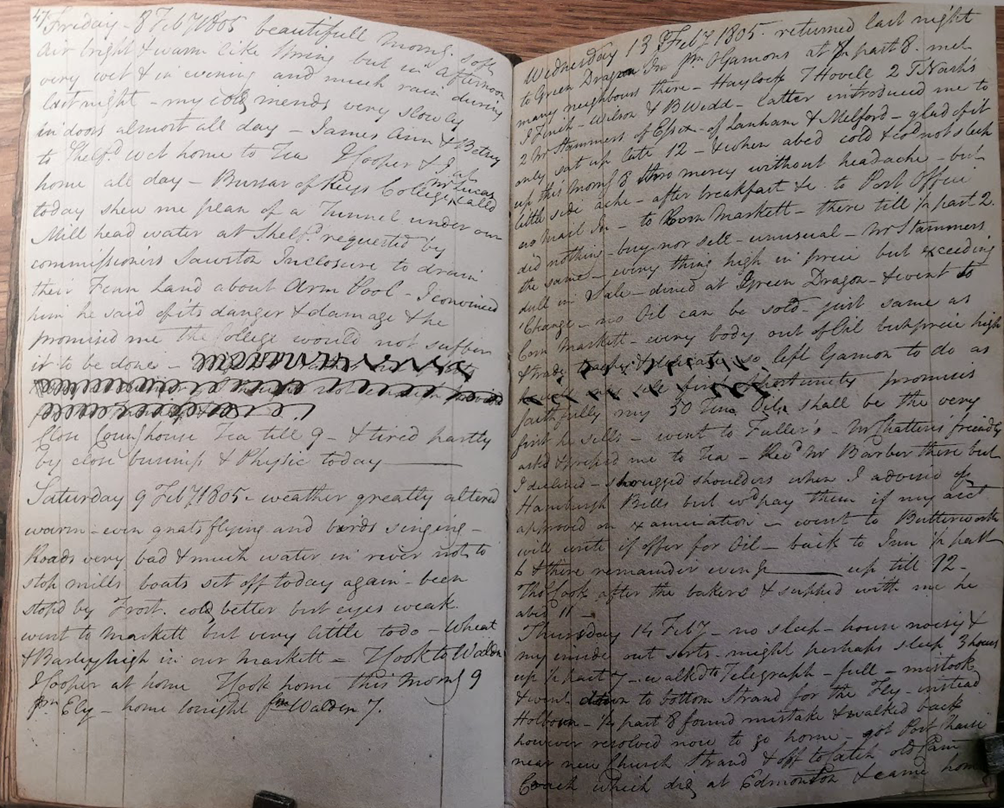 47
Friday - 8 Feby 1805 beautifull morng: soft
air bright & warm like Spring but in afternoon
very wet & in evening and much rain during
last night - my cold mends very slowly
in doors almost all day - James Ann & Betsy
to Shelfd wet home to Tea J Hooper &
home all day - Bursar of Keys College Mr Lucas calld
today shew me plan of a Tunnel under our
Mill head water at Shelfd requested by
commissioners Sawston Inclosure to drain
their Fenn Land about Arm Pool - I convinced
him he said of its danger & damage & he
promised me the College would not suffer
it to be done -
Close Counghouse Tea till 9 - & tired partly
by close business & Physic today
Saturday 9 Feby 1805 - weather greatly altered
warm - even gnats flying and birds singing -
Roads very bad & much water in river not to
stop mills boats set off today again - been
stopd by Frost. cold better but eyes weak
went to Markett but very little to do - Wheat
& Barley high in our markett - T Hook to Walden
J Hooper at home T Hook home this morng 9
fm Ely - home tonight fm Walden 7.
Wednesday 13 Feby 1805. returned last night
to Green Dragon Inn fm Gamons at ½ past 8. met
many neighbours there - Haylock T Hovell 2 T Nash's
J Finch - Wilson & B Wedd - latter introduced me to
2 Mr Stammers of Essex - of Lanham & Melford - glad of it
only sat up late 12 - & when abed cold & cod not sleep
up this morng 8 thro mercy without headache - but
little side ache - after breakfast &c to Post Office
no Mail In - to Corn Markett - there till ½ past 2.
did nothing - buy nor sell - unusual - Mr Stammers
the same - every thing high in price but exceeding
dull in Sale - dined at Green Dragon - & went to
Change - no Oil can be sold - just same as
Corn Markett - every body out of Oil but price high
& trade left Gamon to do as
opportunity promises
faithfully my 30 Tuns Oil shall be the very
first he sells - went to Fuller's - Mr Chatteris friendly
asked & me to Tea - Revd Mr Barber there but
I declind - shrugged shoulders when I advised of
Hamburgh Bills but wd pay them if my acct
approvd on examination - went to Butterwork
will write if offer for Oil - back to Inn ½ past
6 & there remainder eveng up till 12 -
Thos Cook after the bakers & supped with me he
abed 11 -
Thursday 14 Feby - no sleep - house noisy &
my inside out sorts - might perhaps sleep 3 hours
up ½ past 7 - walkd to Telegraph - full - mistook
& went down to bottom Strand for the Fly - instead
Holborn - ½ past 8 found mistake & walked back
however resolved now to go home - got Post Chaise
near new Church Strand & off to catch old Cam
Coach which did at Edmonton & came home